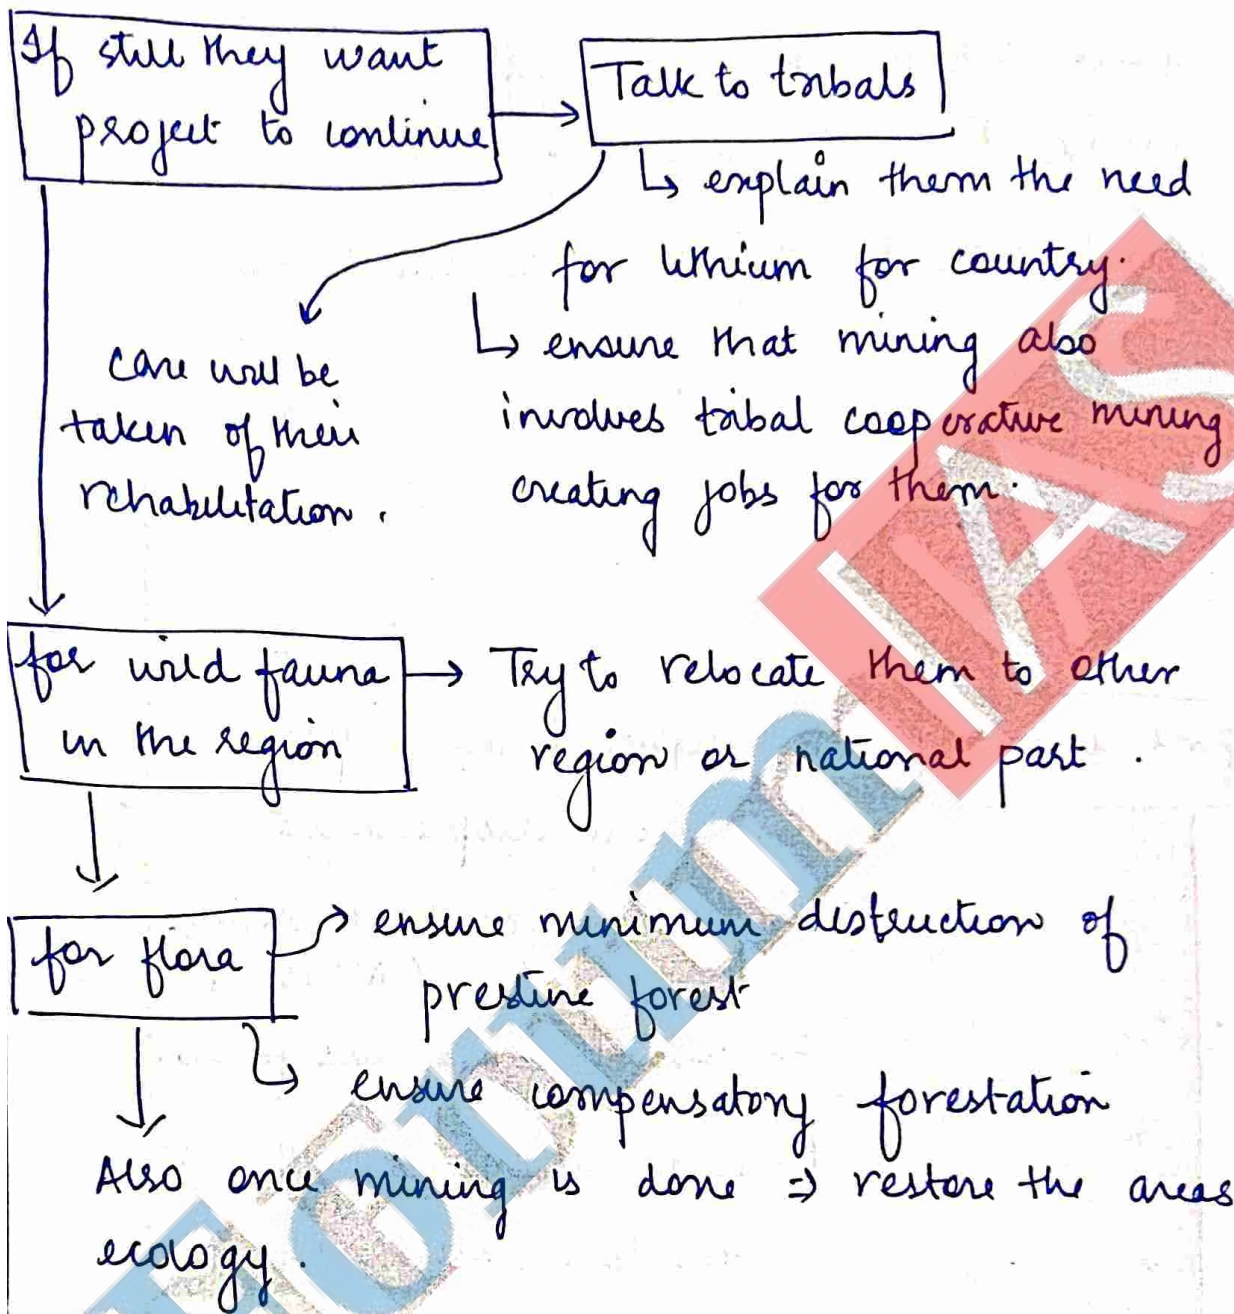 If still they want
project to continue
Talk to tribals
↳ explain them the need
for lithium for country.
↳ ensure that mining also
involves tribal cooperative mining
creating jobs for them.
care will be
taken of their
rehabilitation.
for wild fauna
in the region
Try to relocate them to other
region or national part.
for flora
ensure minimum distruction of
prestine forest
ensure compensatory forestation
Also once mining is done ⇒ restore the areas
ecology.
Forum IAS